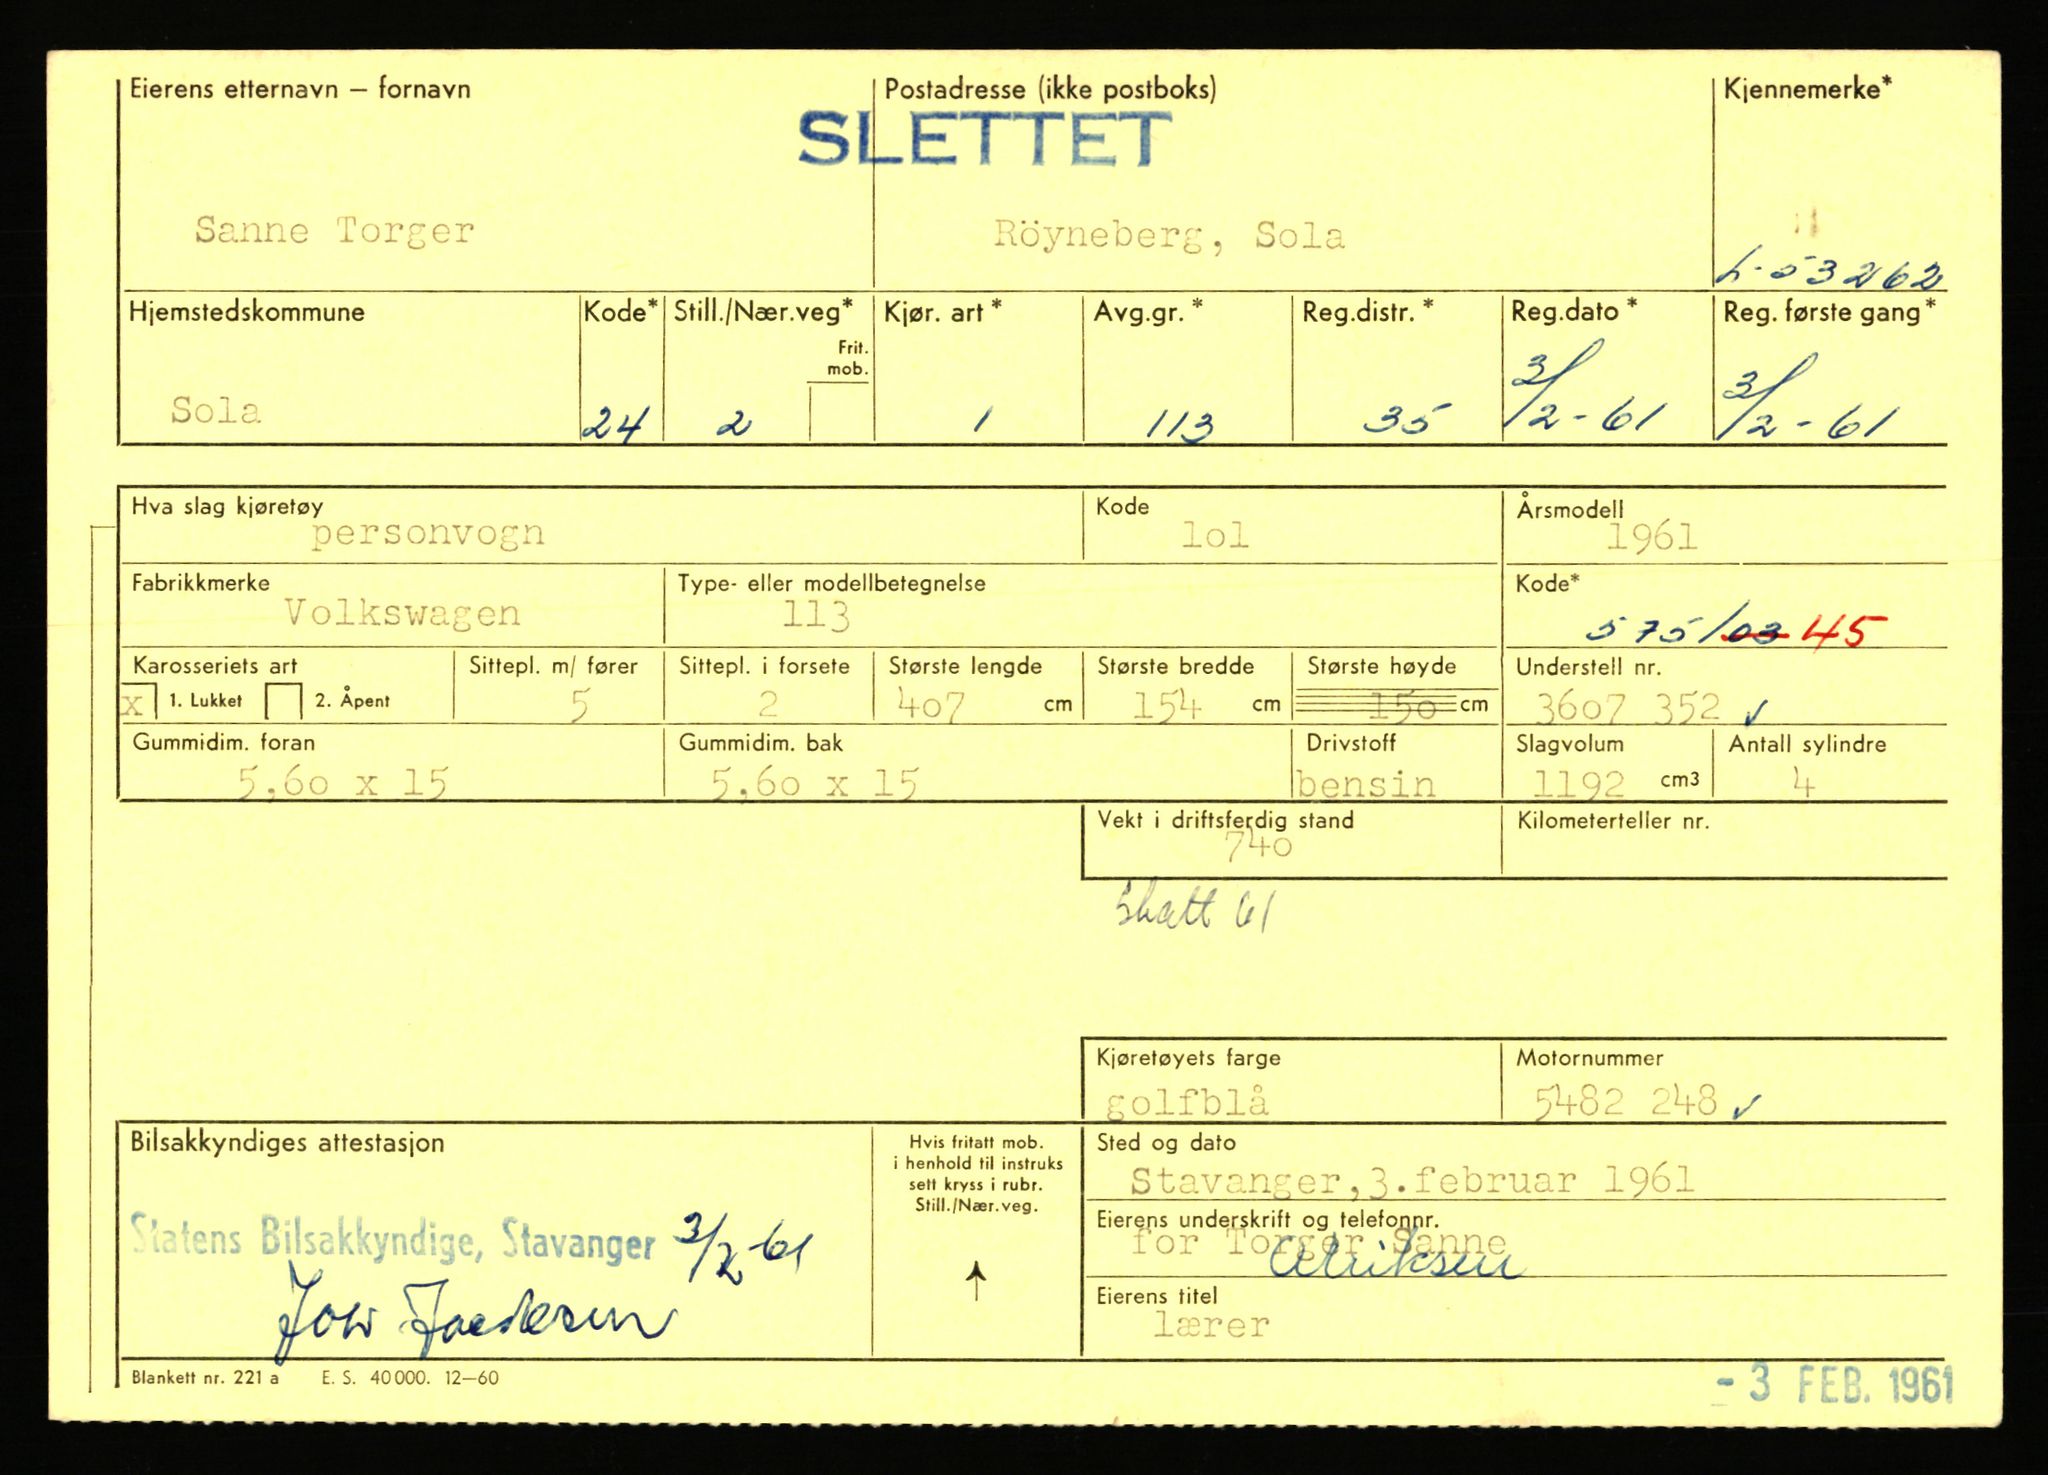 Eierens etternavn – fornavn
Postadresse (ikke postboks)
Kjennemerke*
SLETTET
Sanne Torger
Röyneberg, Sola
L-53262
Hjemstedskommune
Kode*
Still./Nær.veg*
Kjør. art *
Avg.gr. *
Reg.distr. *
Reg.dato *
Reg. første gang*
Frit.
mob.
Sola
24
2
1
113
35
3/2-61
3/2-61
Hva slag kjøretøy
personvogn
Kode
lol
Årsmodell
1961
Fabrikkmerke
Volkswagen
Type- eller modellbetegnelse
113
Kode*
575/03 45
Karosseriets art
x 1. Lukket 2. Åpent
Sittepl. m/ fører
5
Sittepl. i forsete
2
Største lengde
407 cm
Største bredde
154 cm
Største høyde
150 cm
Understell nr.
3607 352
Gummidim. foran
5,60 x 15
Gummidim. bak
5,60 x 15
Drivstoff
bensin
Slagvolum
1192 cm3
Antall sylindre
4
Vekt i driftsferdig stand
740
Kilometerteller nr.
Skatt 61
Kjøretøyets farge
golfblå
Motornummer
5482 248
Bilsakkyndiges attestasjon
Statens Bilsakkyndige, Stavanger 3/2-61
Hvis fritatt mob.
i henhold til instruks
sett kryss i rubr.
Still./Nær.veg.
Sted og dato
Stavanger,3.februar 1961
Eierens underskrift og telefonnr.
for Torger Sanne
Eierens titel
lærer
Blankett nr. 221 a E. S. 40 000. 12–60
- 3 FEB. 1961